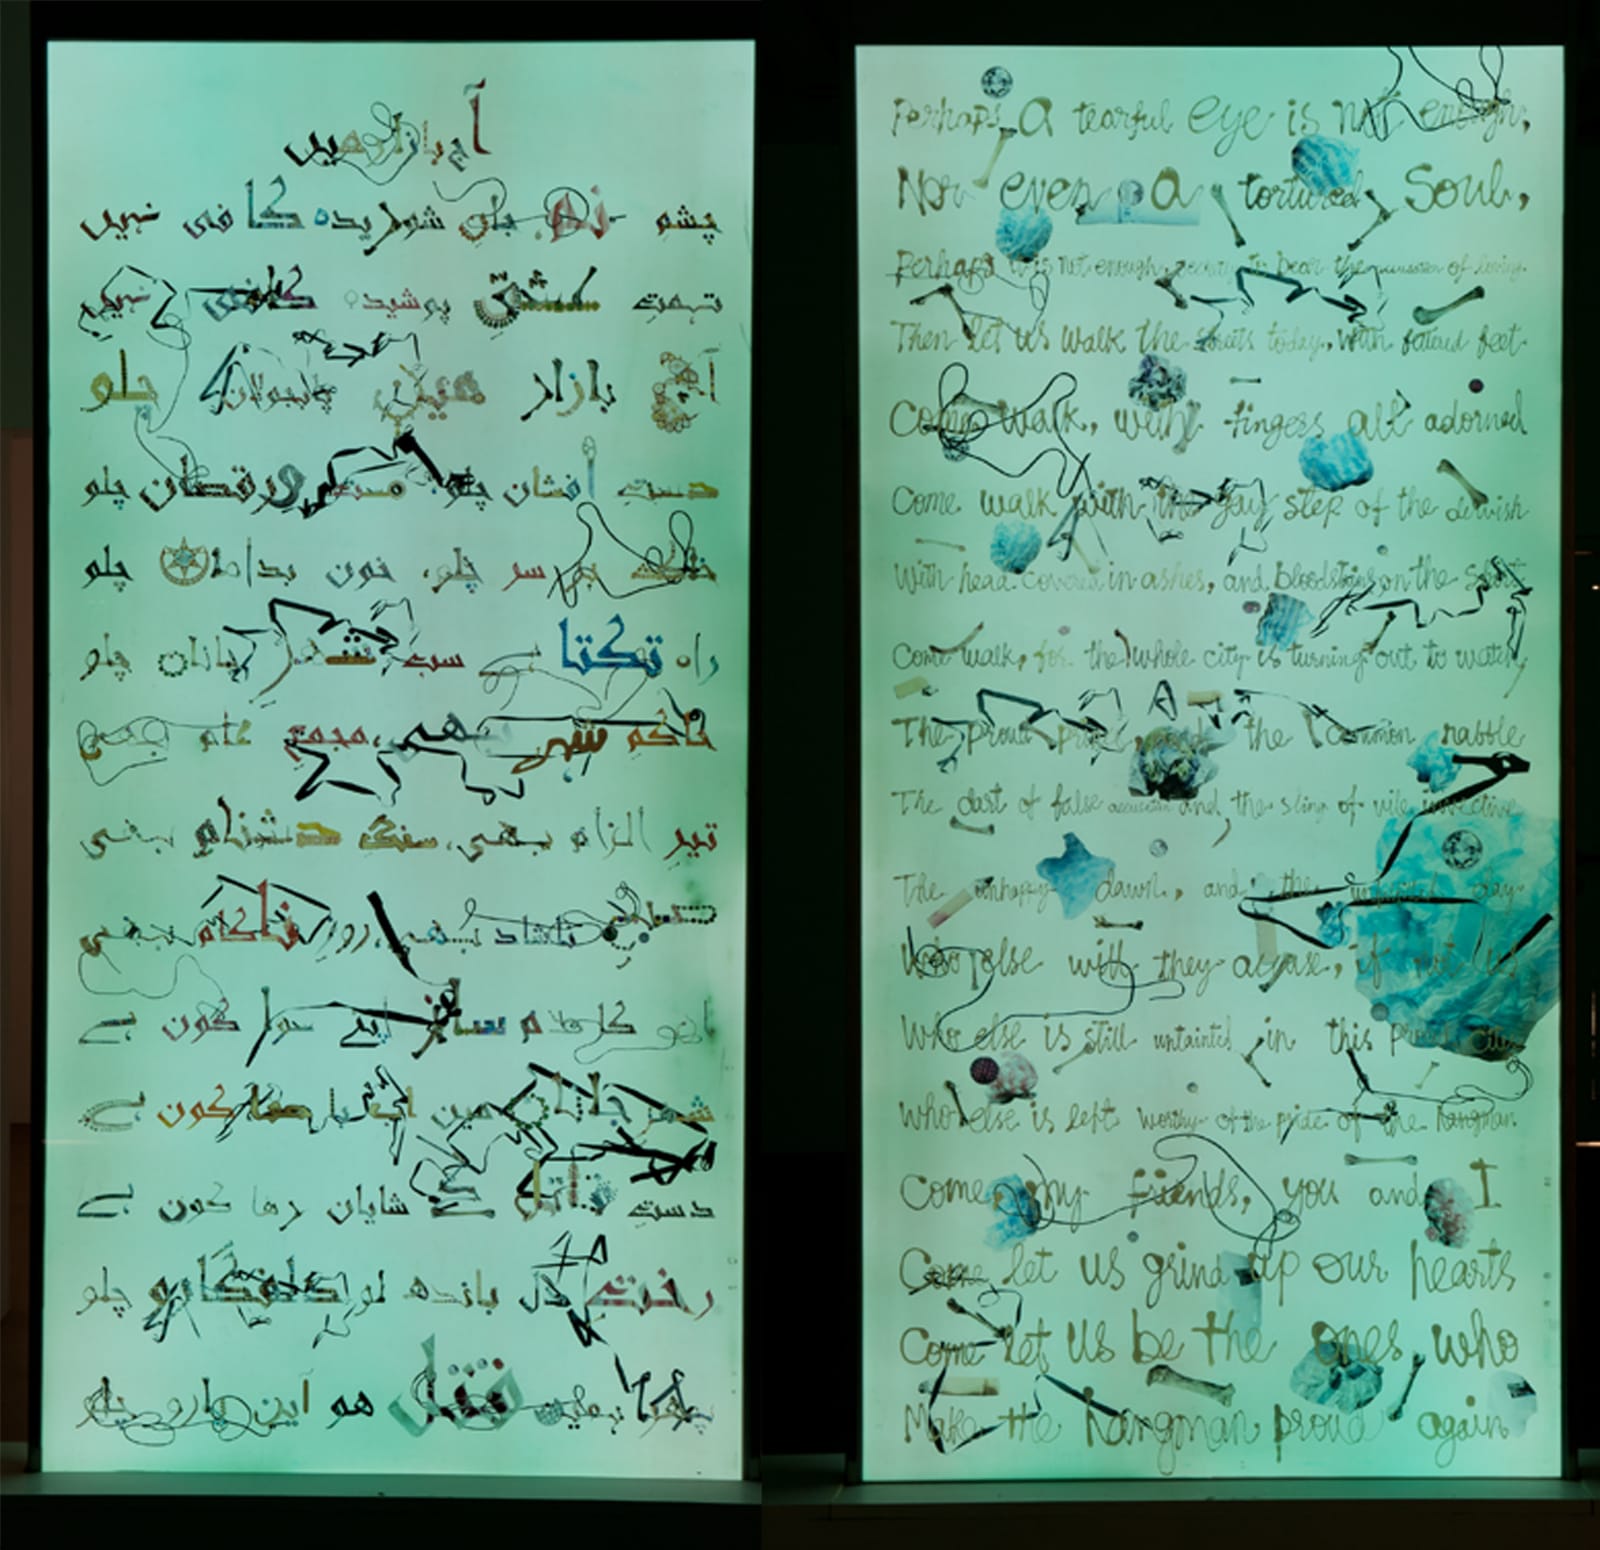 آج بازار میں
چشمِ نم، جانِ شوریدہ کافی نہیں
تہمتِ عشق پوشیدہ کافی نہیں
آج بازار میں پابجولاں چلو
دست افشاں چلو، مست و رقصاں چلو
خاک بر سر چلو، خوں بداماں چلو
راہ تکتا ہے سب شہرِ جاناں چلو
حاکمِ شہر بھی، مجمعِ عام بھی
تیرِ الزام بھی، سنگِ دشنام بھی
صبحِ ناشاد بھی، روزِ ناکام بھی
ان کا دم ساز اپنے سوا کون ہے
شہرِ جاناں میں اب با صفا کون ہے
دستِ قاتل کے شایاں رہا کون ہے
رختِ دل باندھ لو دلفگارو چلو
پھر ہمیں قتل ہو آئیں یارو چلو
Perhaps a tearful eye is not enough,
Nor even a tortured Soul,
Perhaps it is not enough, to bear the accusation of loving.
Then let us walk the streets today, with fettered feet.
Come walk, with fingers all adorned
Come walk with the gay step of the dervish
With head covered in ashes, and bloodstains on the
Come walk, for the whole city is turning out to watch,
The proud prince, and the common rabble
The dart of false accusation and the sling of vile invective
The unhappy dawn, and the day.
Who else will they accuse, if not us
Who else is still untainted in this
Who else is left worthy of the pride of the hangman
Come, my friends, you and I
Come let us grind up our hearts
Come let us be the ones who
Make the hangman proud again